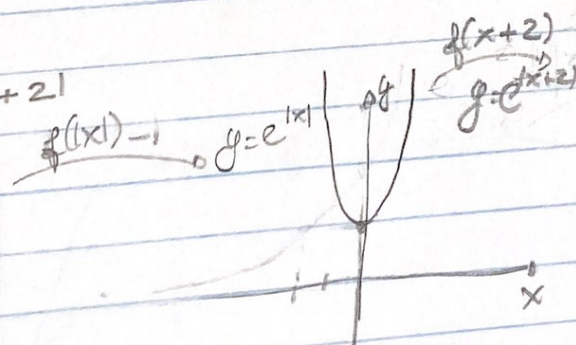 + 2|
f(|x|) - 1
y = e^|x|
y
f(x+2)
y = e^|x+2|
x